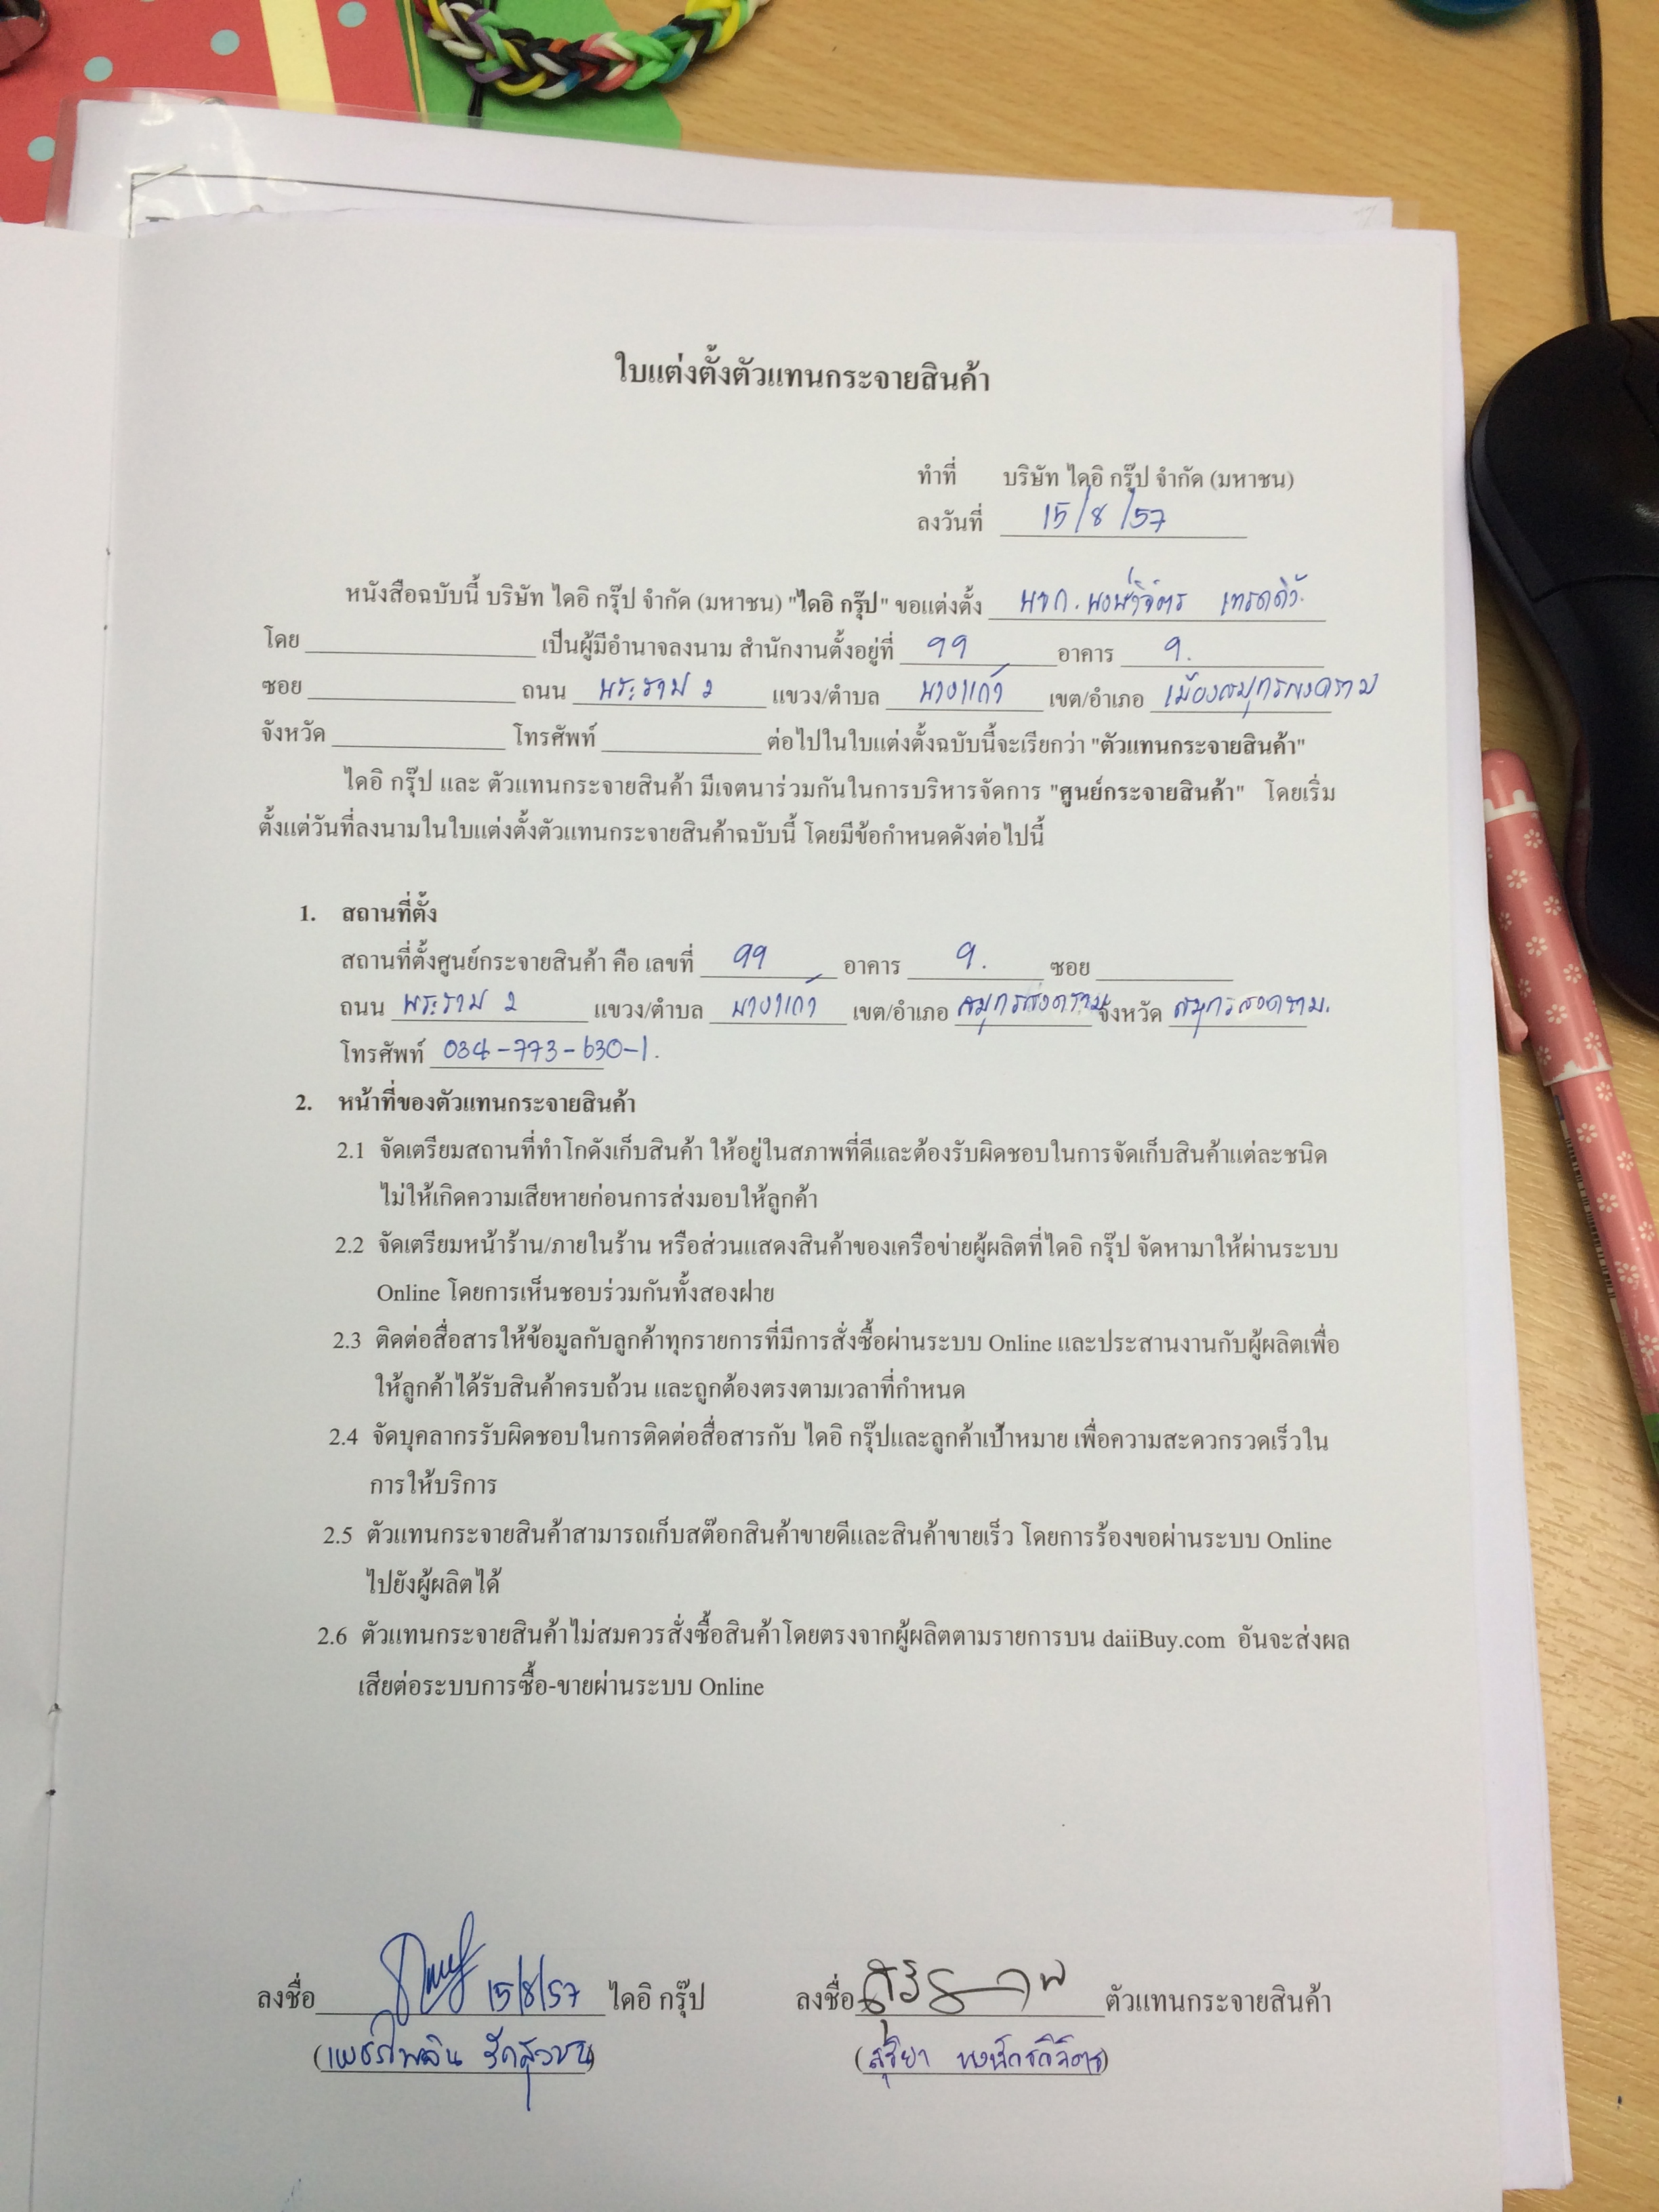 ใบแต่งตั้งตัวแทนกระจายสินค้า
ทำที่ บริษัท ไดอิ กรุ๊ป จำกัด (มหาชน)
ลงวันที่ 15/8/57
หนังสือฉบับนี้ บริษัท ไดอิ กรุ๊ป จำกัด (มหาชน) "ไดอิ กรุ๊ป" ขอแต่งตั้ง หจก.
โดย เป็นผู้มีอำนาจลงนาม สำนักงานตั้งอยู่ที่ 99 อาคาร 9.
ซอย ถนน พระราม 2 แขวง/ตำบล นางแก้ว เขต/อำเภอ เมืองสมุทรสงคราม
จังหวัด โทรศัพท์ ต่อไปในใบแต่งตั้งฉบับนี้จะเรียกว่า "ตัวแทนกระจายสินค้า"
ไดอิ กรุ๊ป และ ตัวแทนกระจายสินค้า มีเจตนาร่วมกันในการบริหารจัดการ "ศูนย์กระจายสินค้า" โดยเริ่ม
ตั้งแต่วันที่ลงนามในใบแต่งตั้งตัวแทนกระจายสินค้าฉบับนี้ โดยมีข้อกำหนดดังต่อไปนี้
1. สถานที่ตั้ง
สถานที่ตั้งศูนย์กระจายสินค้า คือ เลขที่ 99 อาคาร 9. ซอย
ถนน พระราม 2 แขวง/ตำบล นางแก้ว เขต/อำเภอ สมุทรสงคราม จังหวัด สมุทรสงคราม.
โทรศัพท์ 034-773-630-1.
2. หน้าที่ของตัวแทนกระจายสินค้า
2.1 จัดเตรียมสถานที่ทำโกดังเก็บสินค้า ให้อยู่ในสภาพที่ดีและต้องรับผิดชอบในการจัดเก็บสินค้าแต่ละชนิด
ไม่ให้เกิดความเสียหายก่อนการส่งมอบให้ลูกค้า
2.2 จัดเตรียมหน้าร้าน/ภายในร้าน หรือส่วนแสดงสินค้าของเครือข่ายผู้ผลิตที่ไดอิ กรุ๊ป จัดหามาให้ผ่านระบบ
Online โดยการเห็นชอบร่วมกันทั้งสองฝ่าย
2.3 ติดต่อสื่อสารให้ข้อมูลกับลูกค้าทุกรายการที่มีการสั่งซื้อผ่านระบบ Online และประสานงานกับผู้ผลิตเพื่อ
ให้ลูกค้าได้รับสินค้าครบถ้วน และถูกต้องตรงตามเวลาที่กำหนด
2.4 จัดบุคลากรรับผิดชอบในการติดต่อสื่อสารกับ ไดอิ กรุ๊ปและลูกค้าเป้าหมาย เพื่อความสะดวกรวดเร็วใน
การให้บริการ
2.5 ตัวแทนกระจายสินค้าสามารถเก็บสต๊อกสินค้าขายดีและสินค้าขายเร็ว โดยการร้องขอผ่านระบบ Online
ไปยังผู้ผลิตได้
2.6 ตัวแทนกระจายสินค้าไม่สมควรสั่งซื้อสินค้าโดยตรงจากผู้ผลิตตามรายการบน daiiBuy.com อันจะส่งผล
เสียต่อระบบการซื้อ-ขายผ่านระบบ Online
ลงชื่อ 15/8/57 ไดอิ กรุ๊ป ลงชื่อ ตัวแทนกระจายสินค้า